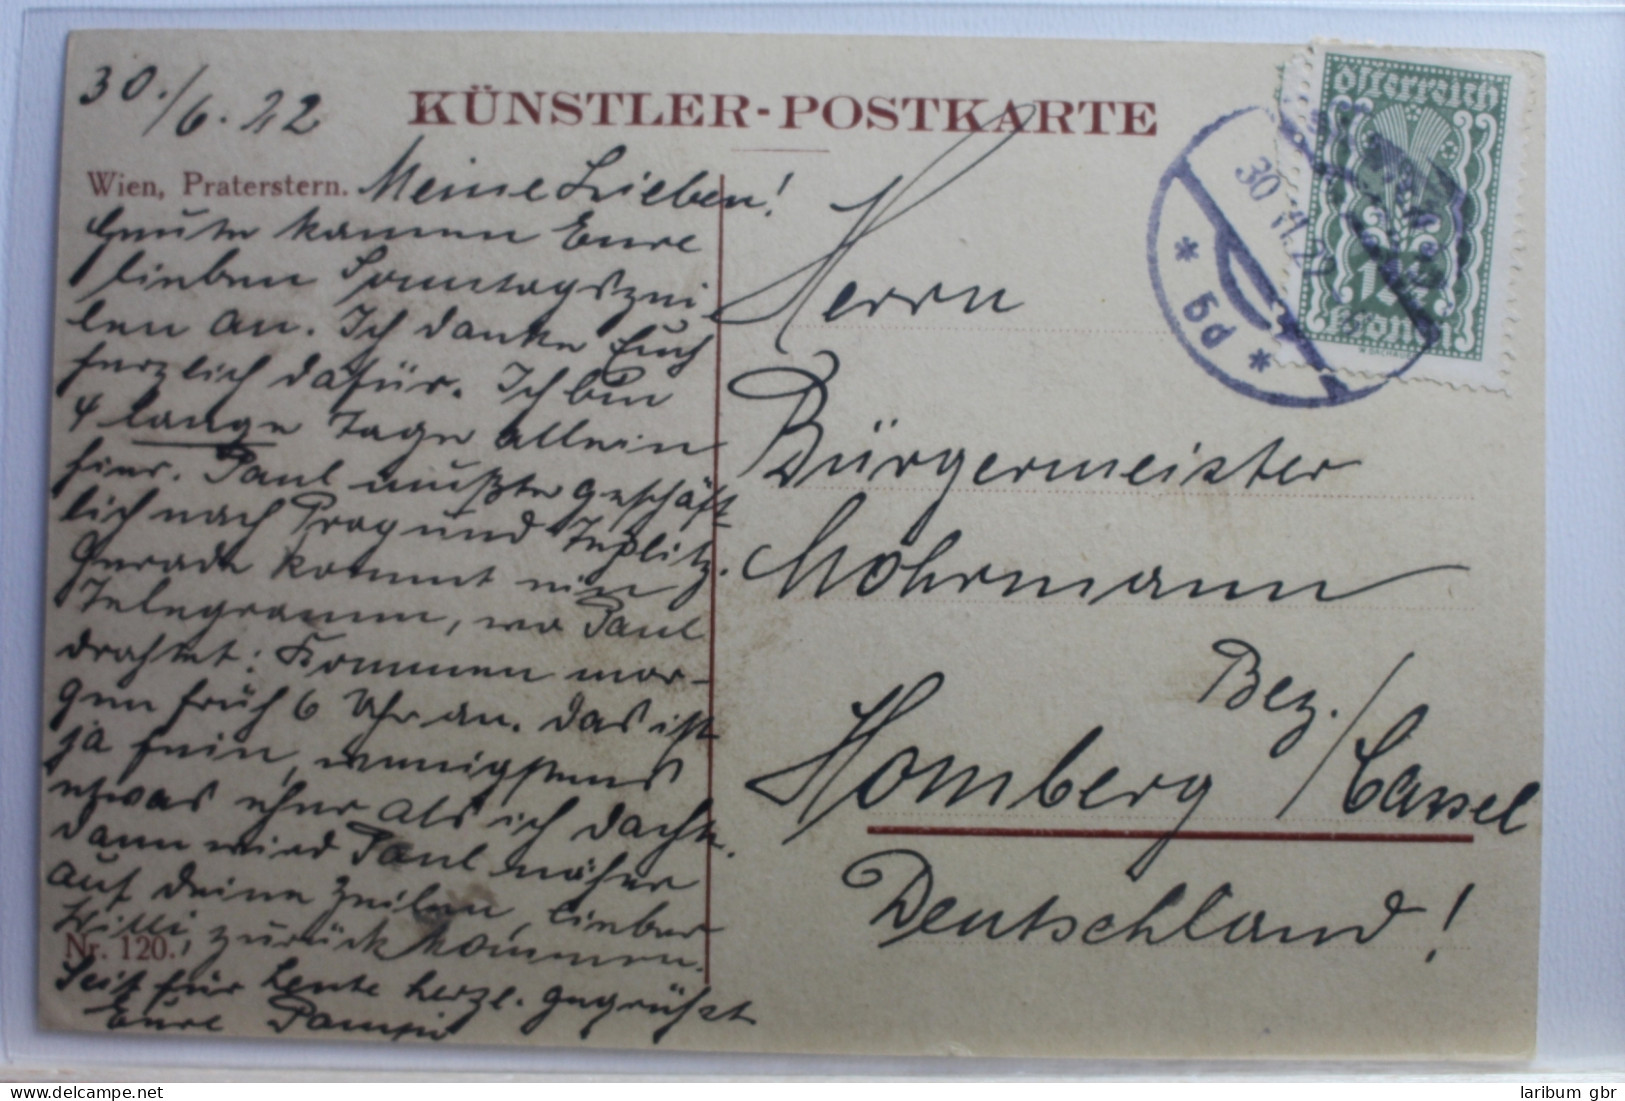 30./6.22
KÜNSTLER-POSTKARTE
Wien, Praterstern.
Meine Lieben!
Heute kamen Eure
lieben Sonntagszei
len an. Ich danke Euch
herzlich dafür. Ich bin
4 lange Tage allein
hier. Paul mußte geschäft
lich nach Prag und Teplitz.
Gerade kommt ein
Telegramm, wo Paul
drahtet: Kommen mor-
gen früh 6 Uhr an. Das ist
ja fein, wenigstens
etwas eher als ich dachte.
Dann wird Paul näher
auf Deine Zeilen, lieber
Willi, zurückkommen.
Nr. 120.
Seit für heute herzl. gegrüßt
Eure
Herrn
Bürgermeister
Möhrmann
Bez.
Homberg / Cassel
Deutschland!
Österreich
Kronen
30.VI.22
* 5d *
laribum gbr